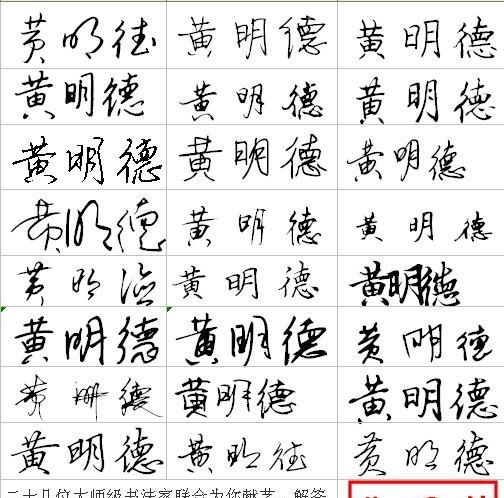 黄明德 黄明德 黄明德
黄明德 黄明德 黄明德
黄明德 黄明德 黄明德
黄明德 黄明德 黄明德
黄明德 黄明德 黄明德
黄明德 黄明德 黄明德
黄明德 黄明德 黄明德
黄明德 黄明德 黄明德
二十几位大师级书法家联合为你献艺，解答